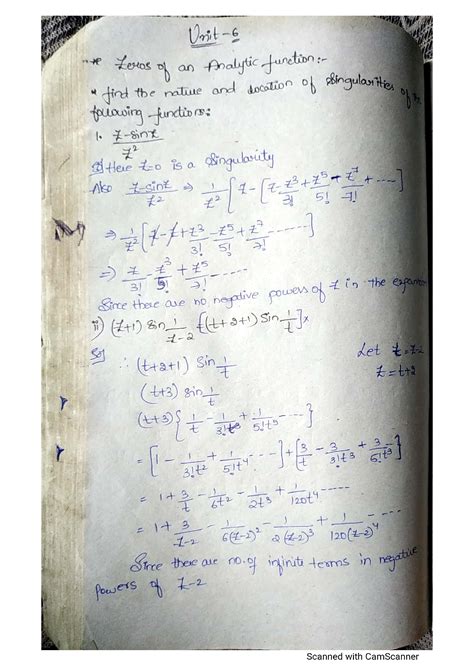 Unit-6
* Zeros of an Analytic function:-
* find the nature and location of singularities of the
following functions:
1. z-sinz/z²
Sol Here z=0 is a singularity
Also z-sinz/z² ⇒ 1/z² [z-[z-z³/3!+z⁵/5!-z⁷/7!+----]
⇒ 1/z² [z-z+z³/3!-z⁵/5!+z⁷/7!-------]
⇒ z/3!-z³/5!+z⁵/7!-------
Since there are no negative powers of z in the expansion
ii) (z+1) sin 1/z-2 =[(t+2+1) sin 1/t]x
Sol ∴ (t+2+1) sin 1/t
Let t=z-2
z=t+2
(t+3) sin 1/t
(t+3) {1/t-1/3!t³+1/5!t⁵-----}
=[1-1/3!t²+1/5!t⁴----]+[3/t-3/3!t³+3/5!t⁵
=1+3/t-1/6t²-1/2t³+1/120t⁴-----
=1+3/z-2-1/6(z-2)²-1/2(z-2)³+1/120(z-2)⁴-----
Since there are no.of infinite terms in negative
powers of z-2
Scanned with CamScanner